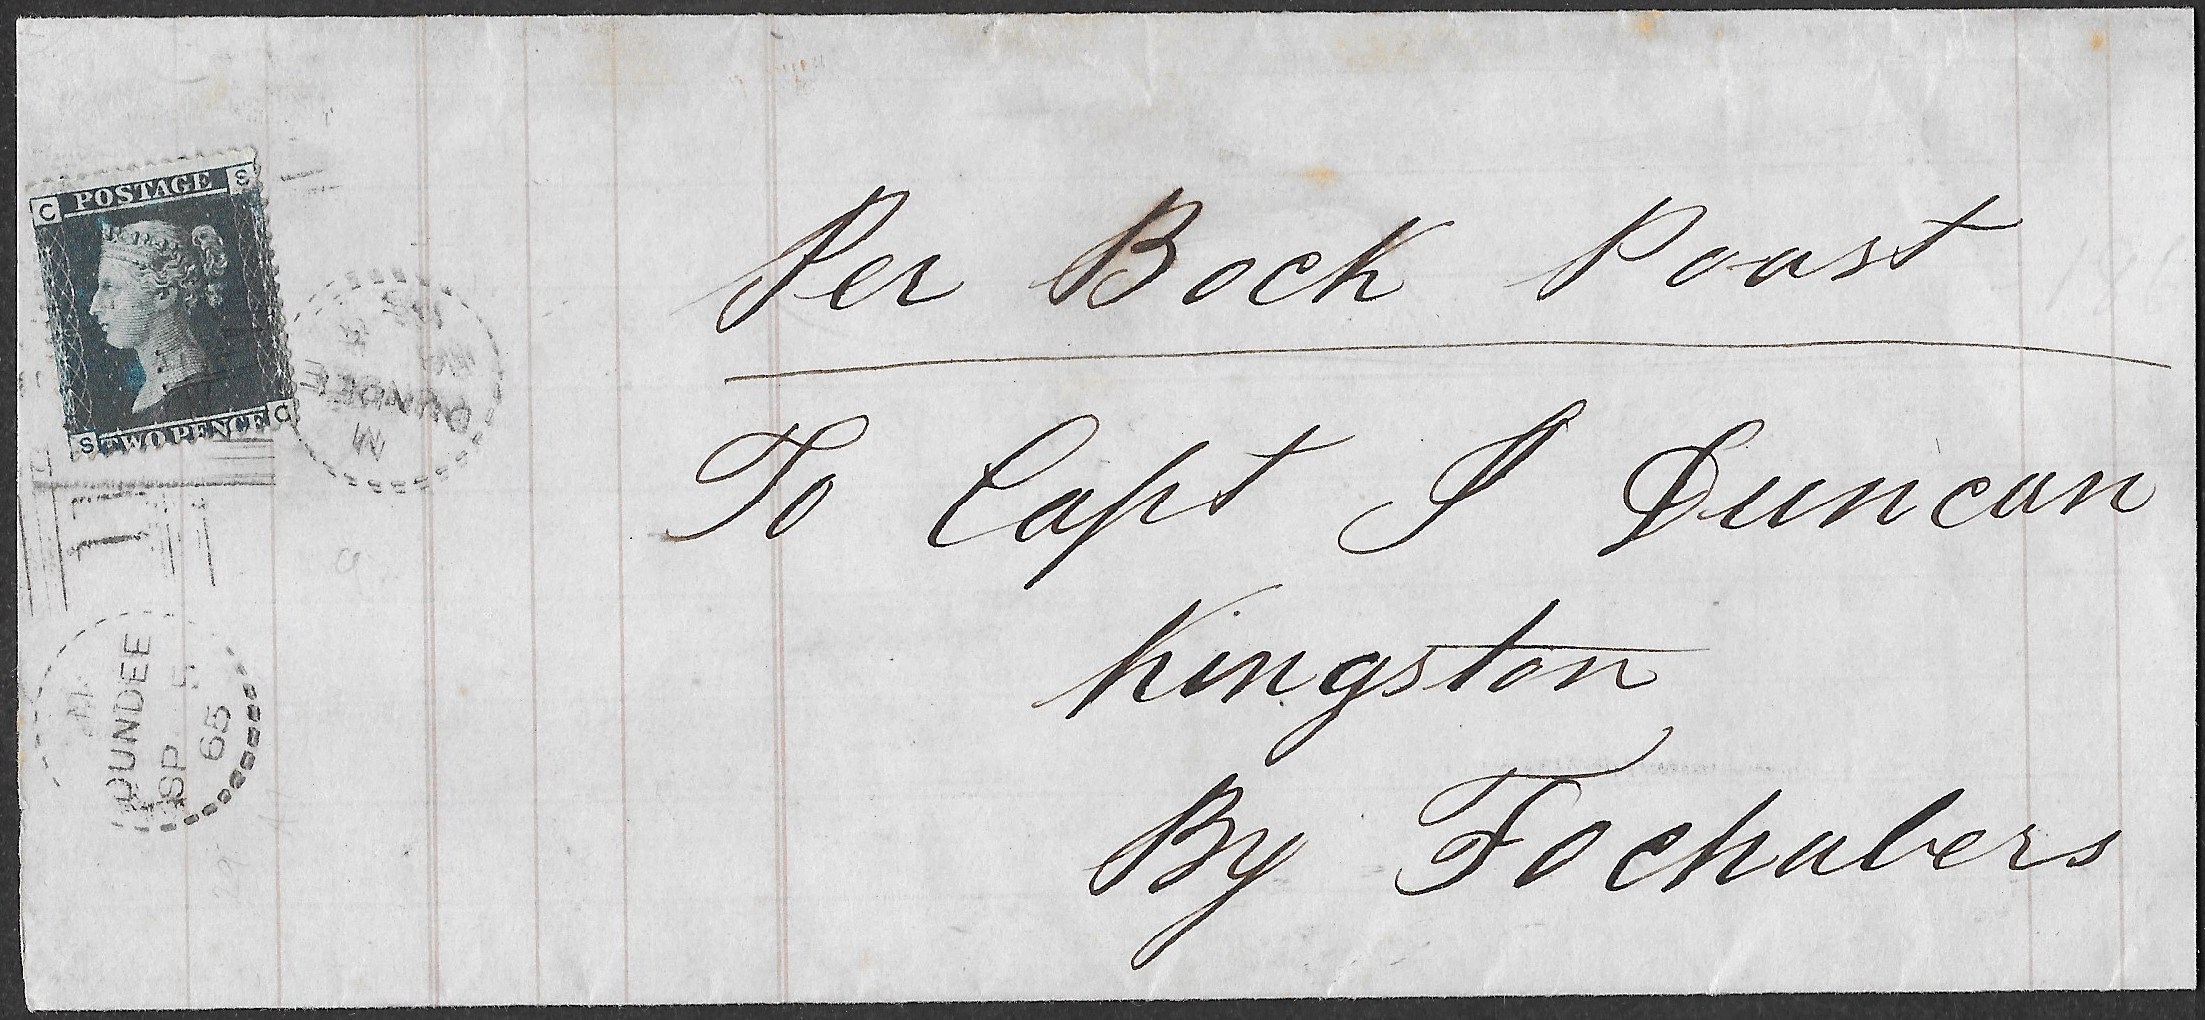 C POSTAGE S
S TWO PENCE C
DUNDEE
M
M
DUNDEE
SP 5
65
Per Bock Poast
To Capt J Duncan
Kingston
By Fochabers